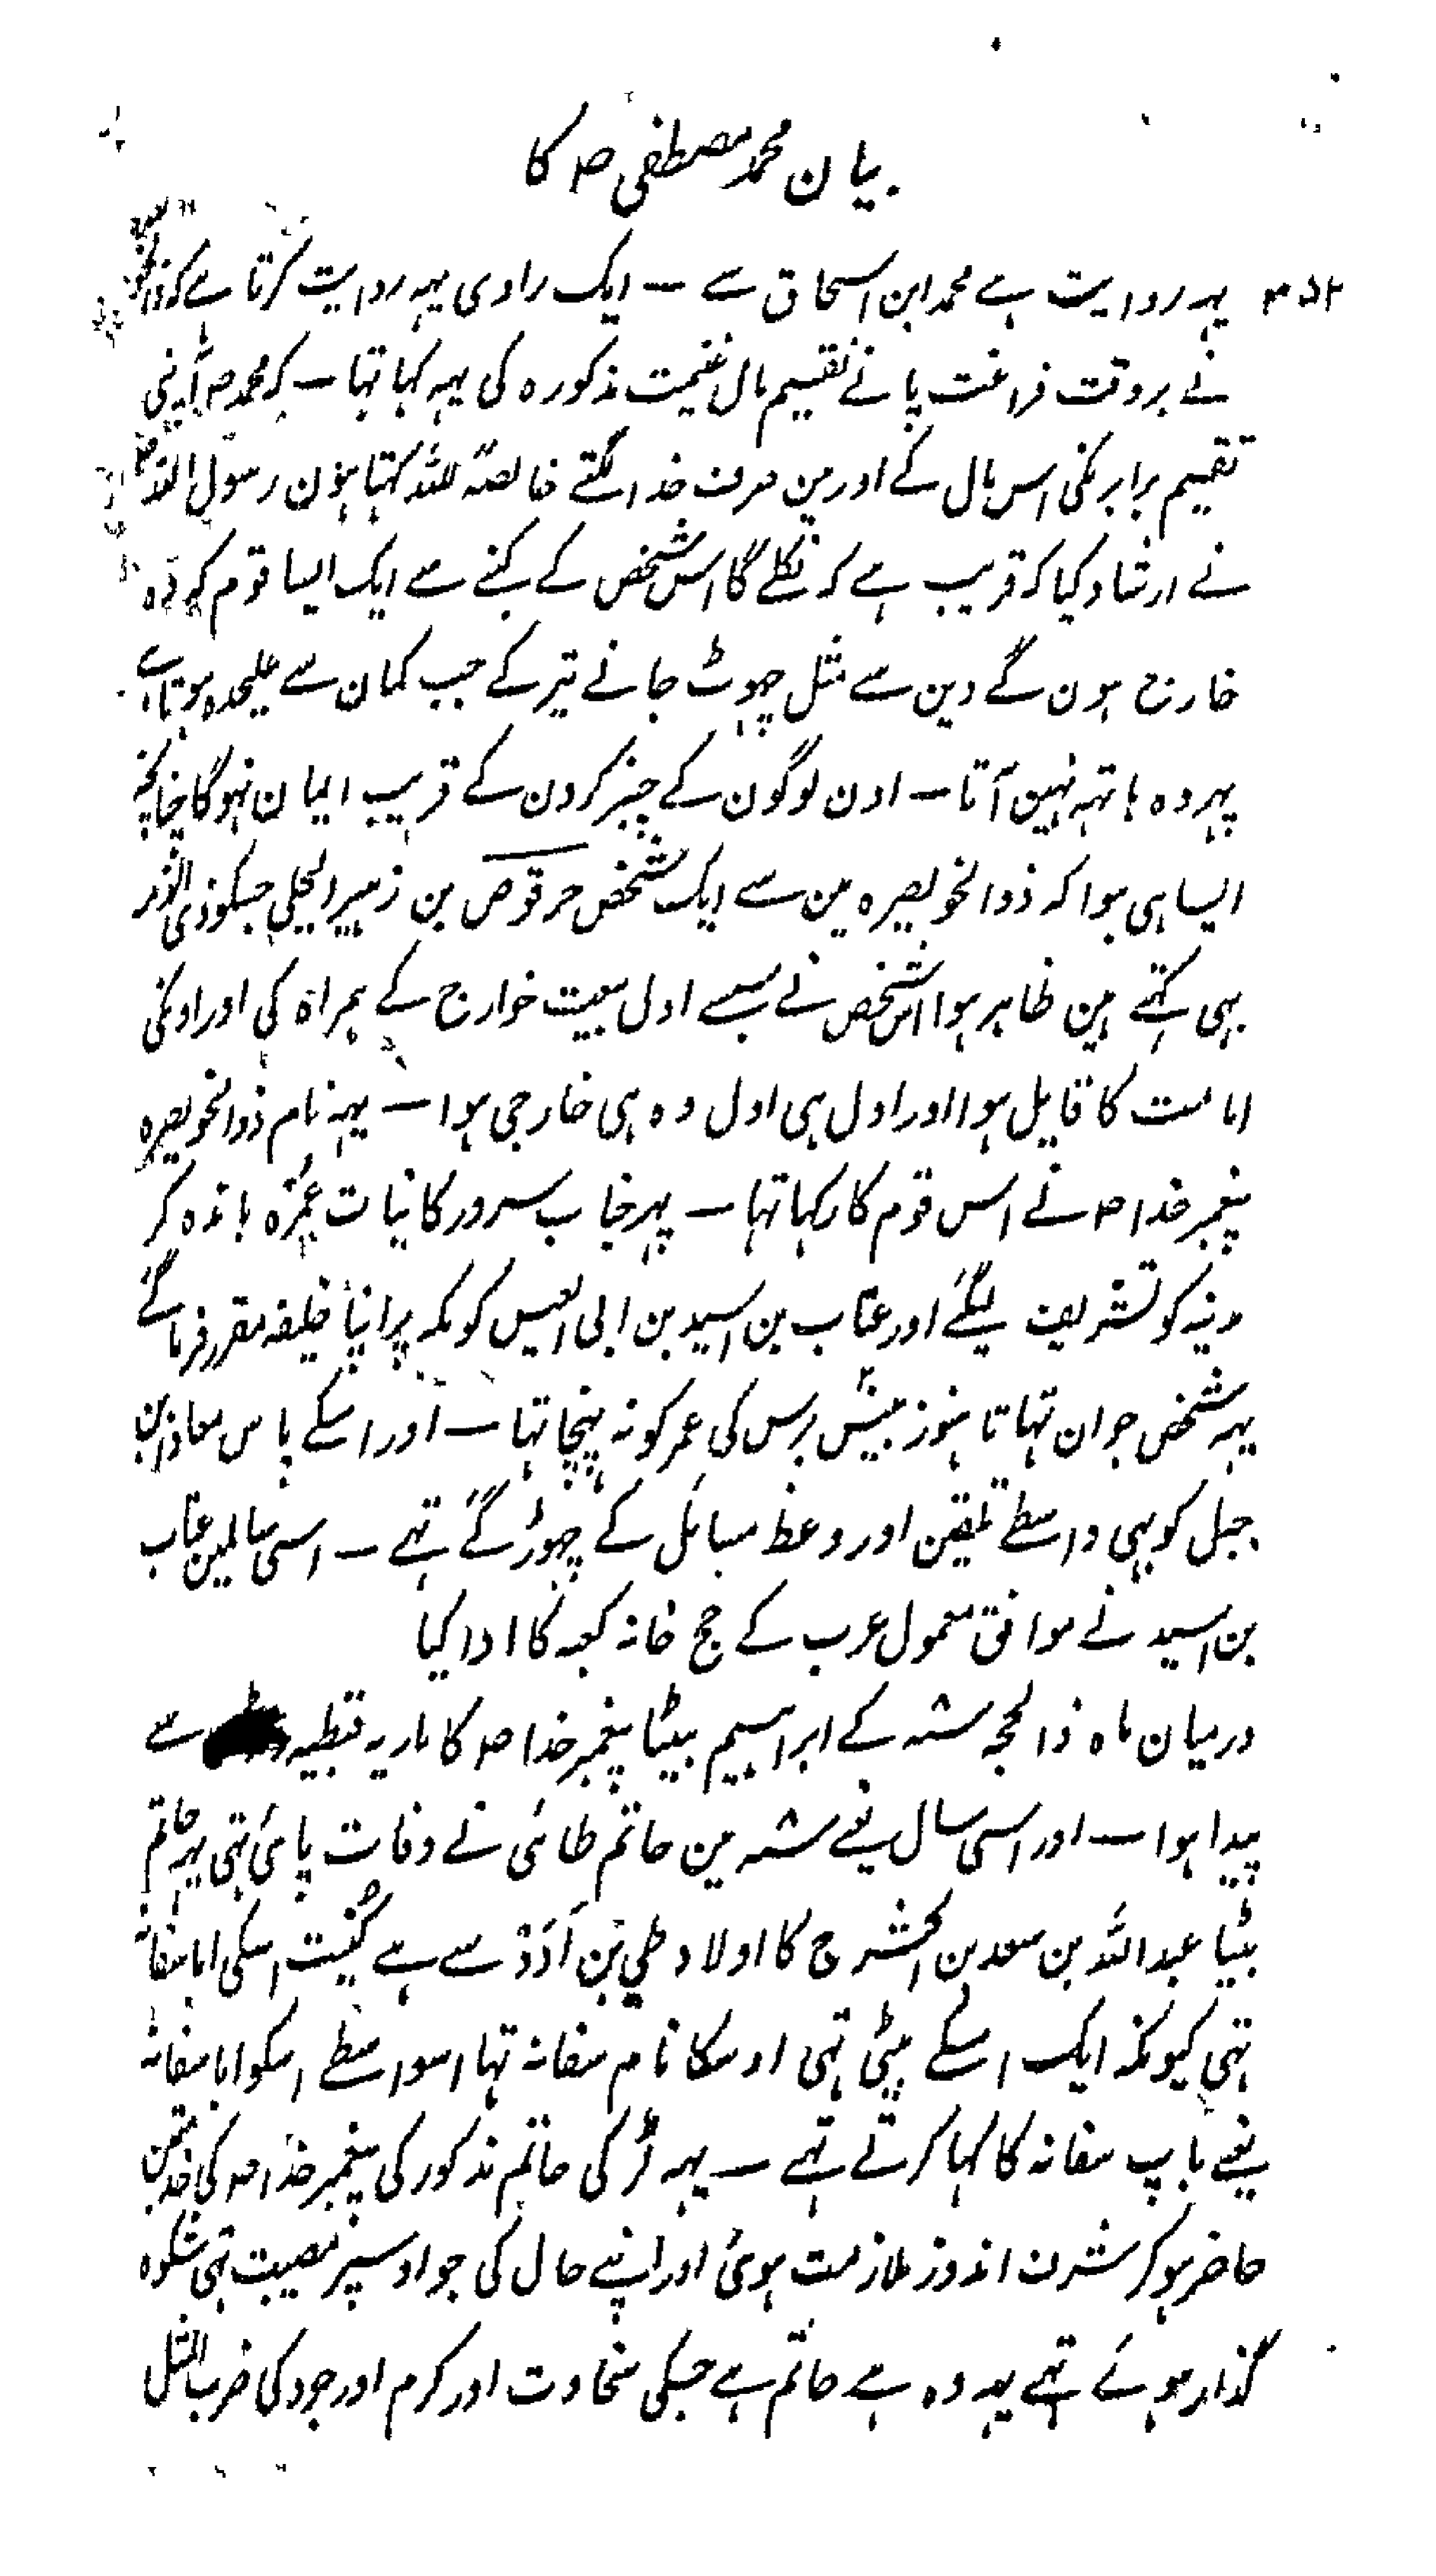 بیان محمد مصطفی ص کا
۴۵۲ یہہ روایت ہے محمد ابن اسحاق سے — ایک راوی یہہ روایت کرتا ہے کہ
نے بروقت فراغت پانے تقسیم مال غنیمت مذکورہ کی یہہ کہا تہا — کہ محمد ص اپنی
تقسیم برابر نکی اس مال کے اور مین صرف خدا لگتے خالصۃً للہ کہتا ہون رسول اللہ ص
نے ارشاد کیا کہ قریب ہے کہ نکلے گا اس شخص کے کنبے سے ایک ایسا قوم کہ وہ
خارج ہون گے دین سے مثل چہوٹ جانے تیر کے جب کمان سے علیحدہ ہوتا ہے
پہر وہ ہاتہہ نہین آتا — اون لوگون کے چنبر کردن کے قریب ایمان نہوگا چنانچہ
ایسا ہی ہوا کہ ذوالخویصرہ مین سے ایک شخص حرقوص بن زہیر البجلی جسکو ذی الثدیہ
بہی کہتے ہین ظاہر ہوا اس شخص نے سبسے اول بیعت خوارج کے ہمراہ کی اور اونکی
امامت کا قایل ہوا اور اول ہی اول وہ ہی خارجی ہوا — یہہ نام ذوالخویصرہ
پیغمبر خدا ص نے اس قوم کا رکہا تہا — پہر جناب سرور کائنات عمرہ باندہ کر
مدینہ کو تشریف لیگئے اور عتاب بن اسید بن ابی العیس کو مکہ پر اپنا خلیفہ مقرر فرما گئے
یہہ شخص جوان تہا تا ہنوز بیس برس کی عمر کو نہ پہنچا تہا — اور اسکے پاس معاذ ابن
جبل کو بہی واسطے تلقین اور وعظ مسایل کے چہوڑ گئے تہے — اسی سالمین عتاب
بن اسید نے موافق معمول عرب کے حج خانہ کعبہ کا ادا کیا
درمیان ماہ ذالحجہ سنہ کے ابراہیم بیٹا پیغمبر خدا ص کا ماریہ قبطیہ سے
پیدا ہوا — اور اسی سال یعنے سنہ مین حاتم طائی نے وفات پائی تہی یہہ حاتم
بیٹا عبداللہ بن سعد بن الحشرج کا اولاد طی بن اَدَدْ سے ہے کُنیت اسکی اباسفانہ
تہی کیونکہ ایک اسکے بیٹی تہی اوسکا نام سفانہ تہا اسواسطے اسکو اباسفانہ
یعنے باپ سفانہ کا کہا کرتے تہے — یہہ لڑکی حاتم مذکور کی پیغمبر خدا ص کی خدمتمین
حاضر ہوکر شرف اندوز ملازمت ہوئی اور اپنے حال کی جو اوسپر مصیبت تہی شکوہ
گذار ہوئے تہے یہہ وہ ہے حاتم ہے جسکی سخاوت اور کرم اور جود کی ضرب المثل